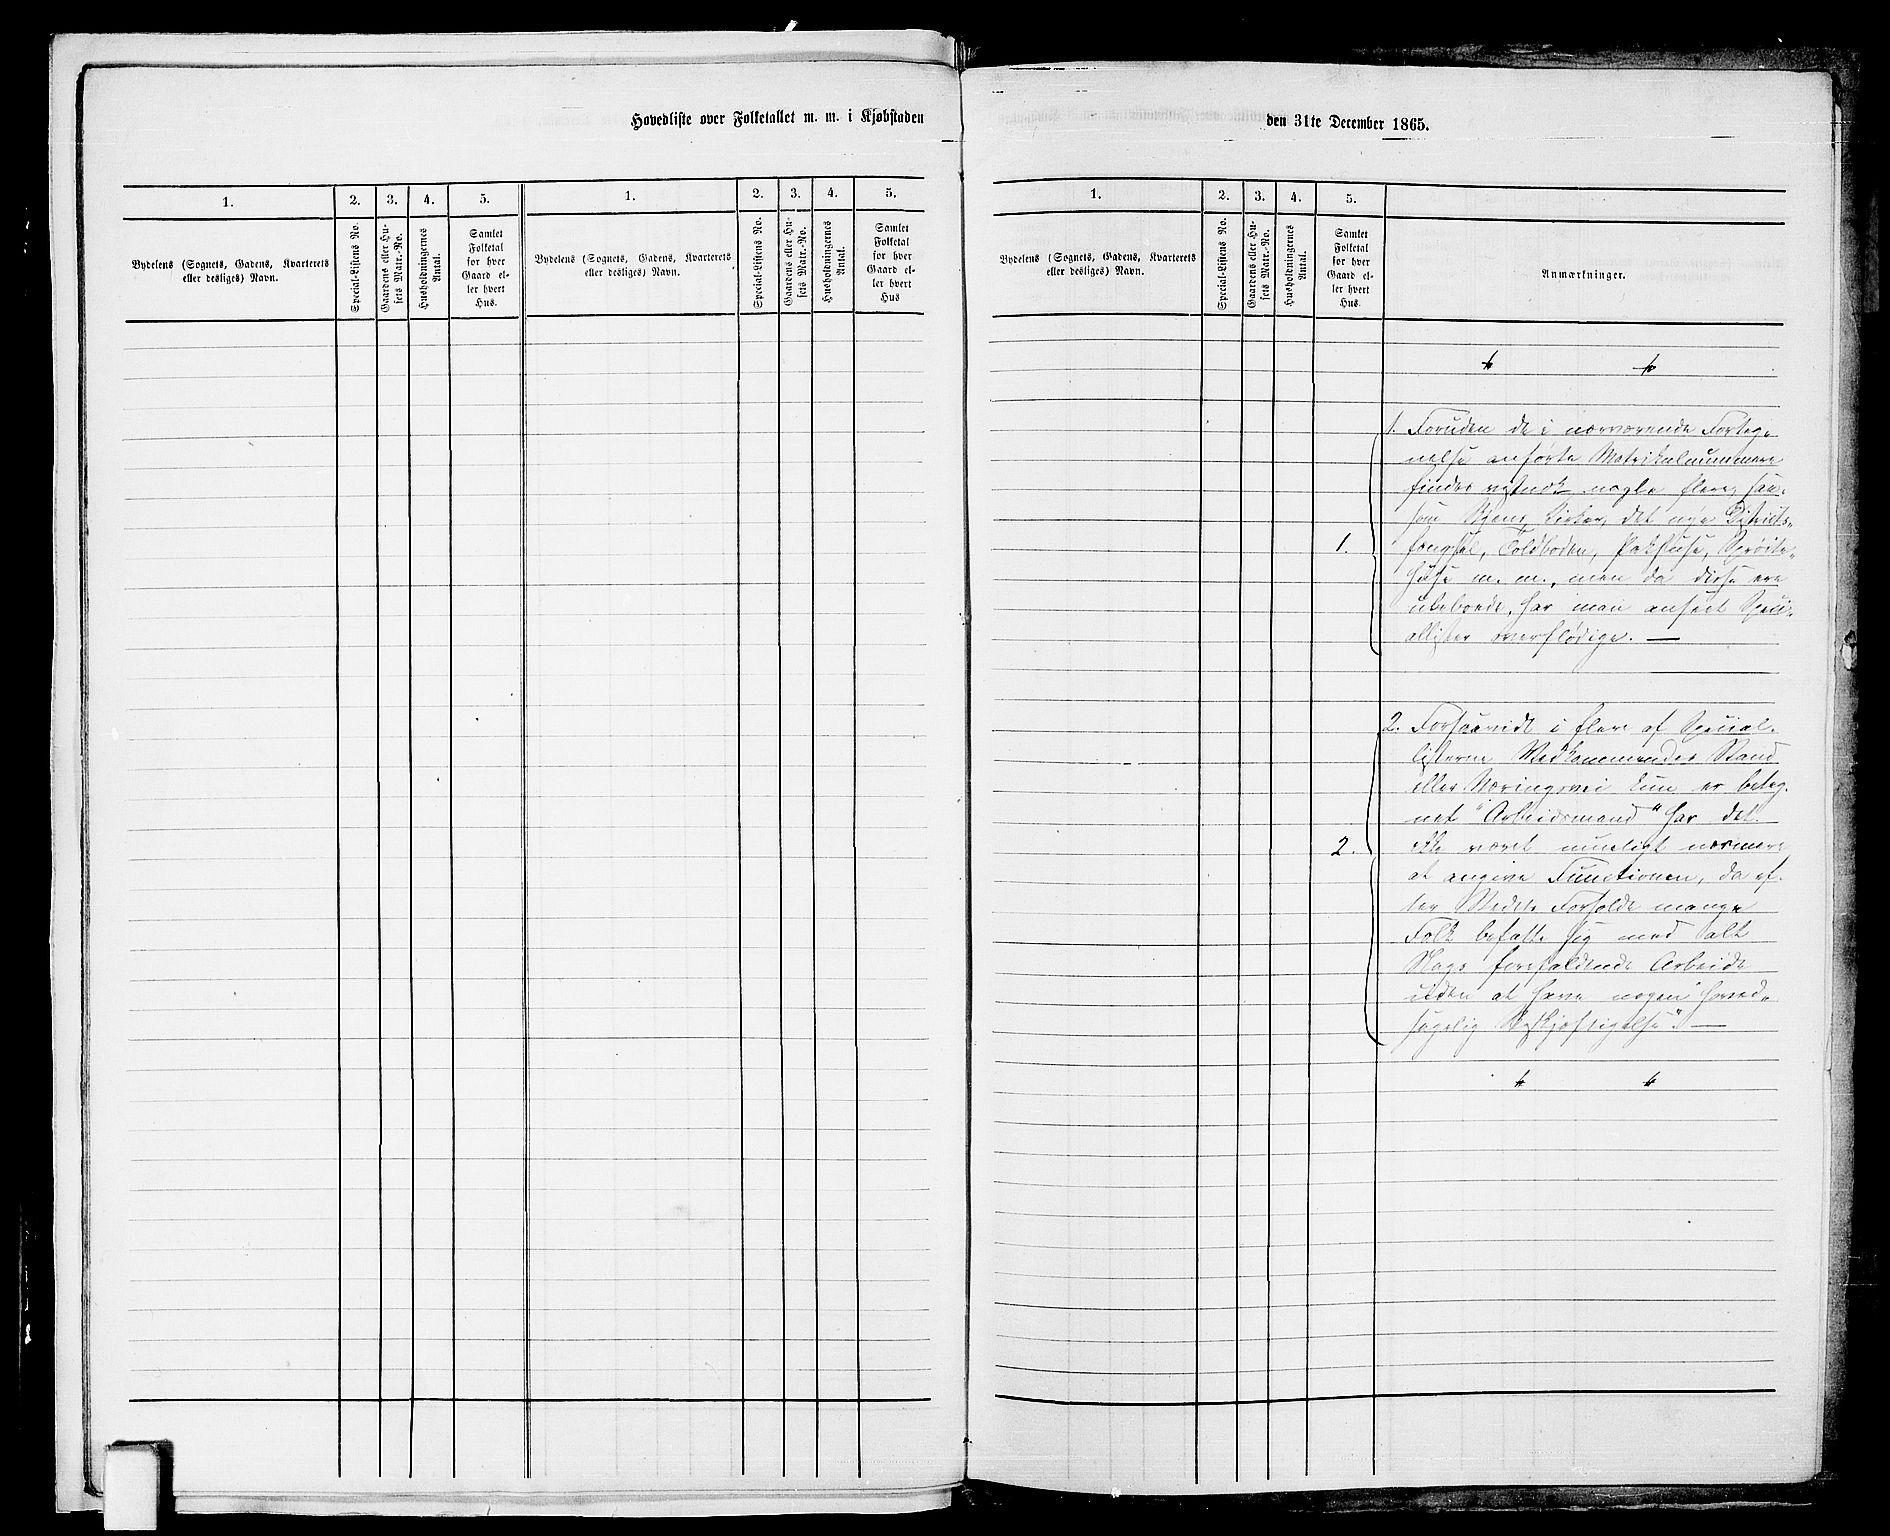 Hovedliste over Folketallet m. m. i Kjøbstaden
1. 2. 3. 4. 5. 1. 2. 3. 4. 5.
Bydelens (Sognets, Gadens, Kvarterets
eller desliges) Navn.
Special-Listens No.
Gaardens eller Hu-
sets Matr.-No.
Husholdningernes
Antal.
Samlet
Folketal
for hver
Gaard el-
ler hvert
Hus.
Bydelens (Sognets, Gadens, Kvarterets
eller desliges) Navn.
Special-Listens No.
Gaardens eller Hu-
sets Matr.-No.
Husholdningernes
Antal.
Samlet
Folketal
for hver
Gaard el-
ler hvert
Hus
den 31te December 1865.
1. 2. 3. 4. 5.
Bydelens (Sognets, Gadens, Kvarterets
eller desliges) Navn.
Special-Listens No.
Gaardens eller Hu-
sets Matr.-No.
Husholdningernes
Antal.
Samlet
Folketal
for hver
Gaard el-
ler hvert
Hus.
Anmærkninger.
1. Foruden de i nærværende Forteg-
nelse anførte Matrikulnummere
findes endnu nogle flere, saa-
som Kirker, det nye Distrikts-
1. fængsel, Toldboden, Pakhuse, Sprøite-
huse m. m., men da disse ere
ubeboede, har man anseet Speci-
allister overflødige. —
2. Forsaavidt i flere af Special-
listerne Vedkommendes Stand
eller Næringsvei kun er beteg-
net "Arbeidsmand" har det
2. ikke været mueligt nærmere
at angive Functionen, da ef-
ter Stedets Forholde mange
Folk befatte sig med alt
Slags forefaldende Arbeide
uden at have nogen "hoved-
sagelig Beskjæftigelse". —